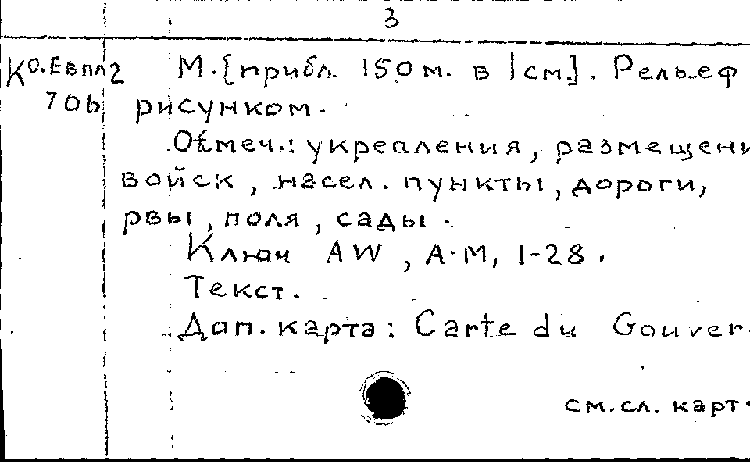 3
Ко.Евпл2 М.[прибл. 150м. в 1см.]. Рельеф
70ь рисунком.
Отмеч.: укрепления, размещени
войск, насел. пункты, дороги,
рвы, поля, сады.
Ключ AW, A-M, 1-28.
Текст.
Доп. карта: Carte du Gouver
см.сл. карт.